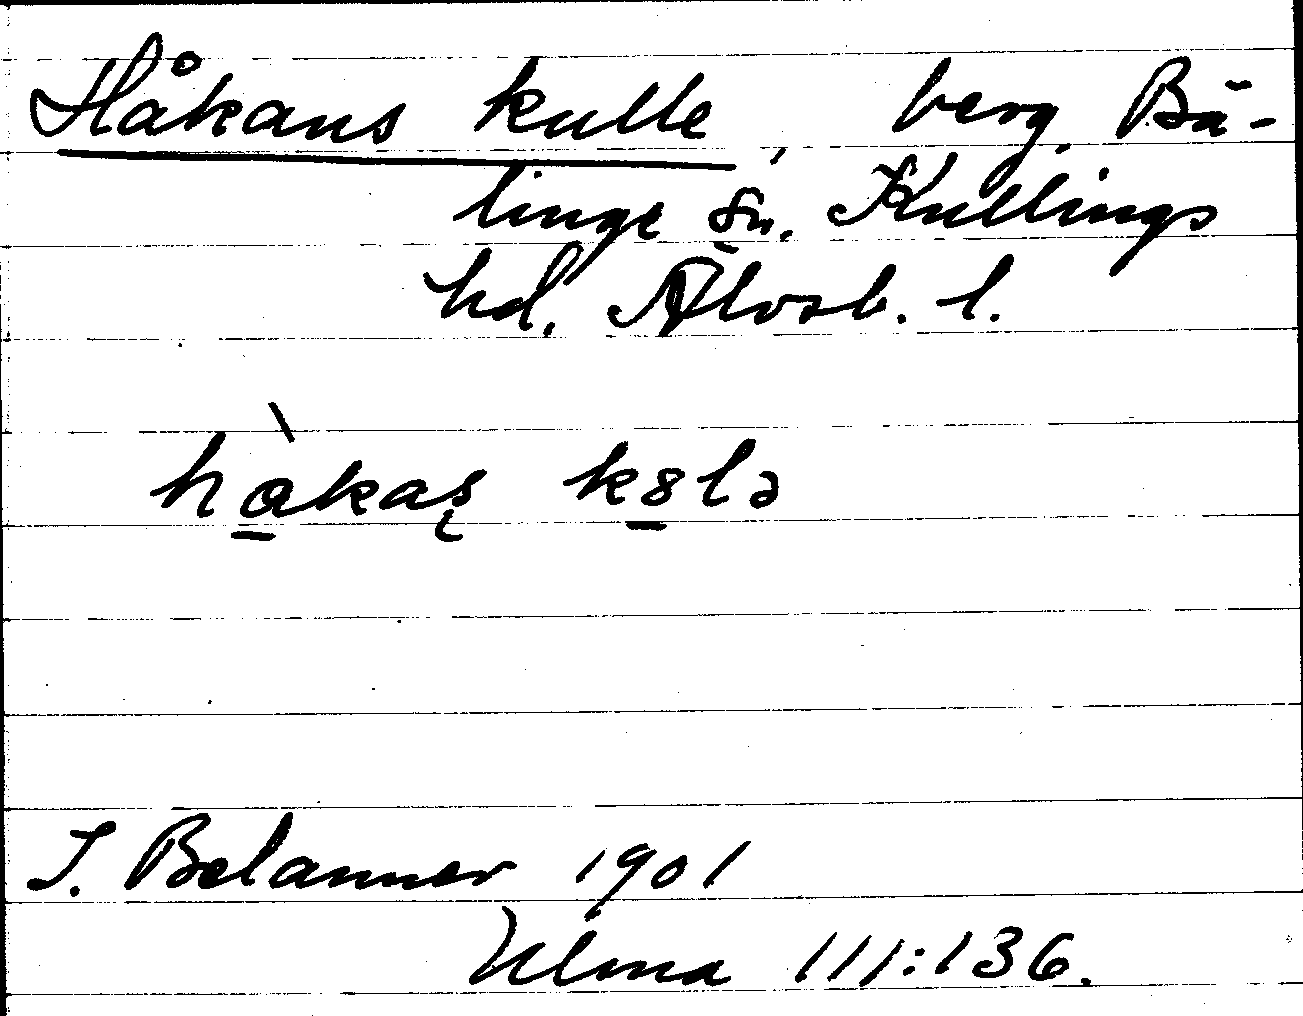 Håkans kulle, berg, Bä-
linge sn. Kullings
hd. Älvsb. l.
hàkaş k8lə
J. Belanner 1901
Ulma 111:136.